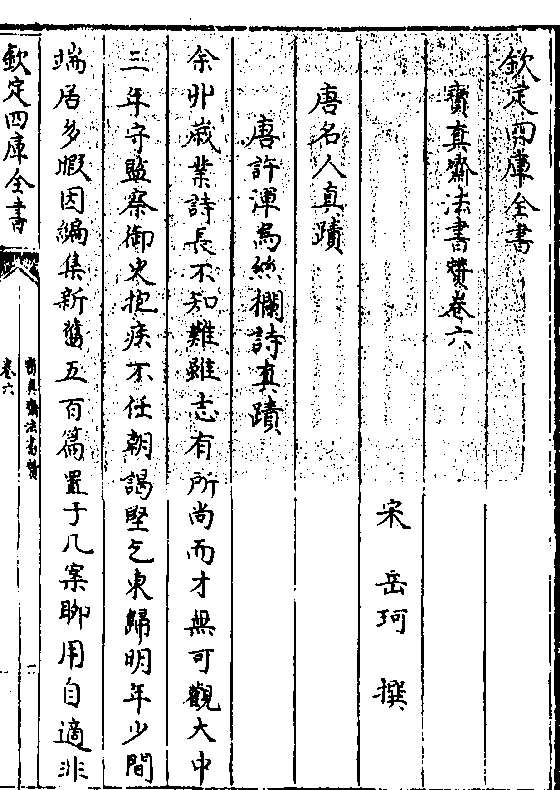 欽定四庫全書
寳真齋法書贊卷六
宋 岳珂 撰
唐名人真蹟
唐許渾烏絲欄詩真蹟
余丱歲業詩長不知難雖志有所尚而才無可觀大中
三年守監察御史抱疾不任朝謁堅乞東歸明年少間
端居多暇因編集新舊五百篇置于几案聊用自適非
欽定四庫全書
寳真齋法書贊
卷六
一